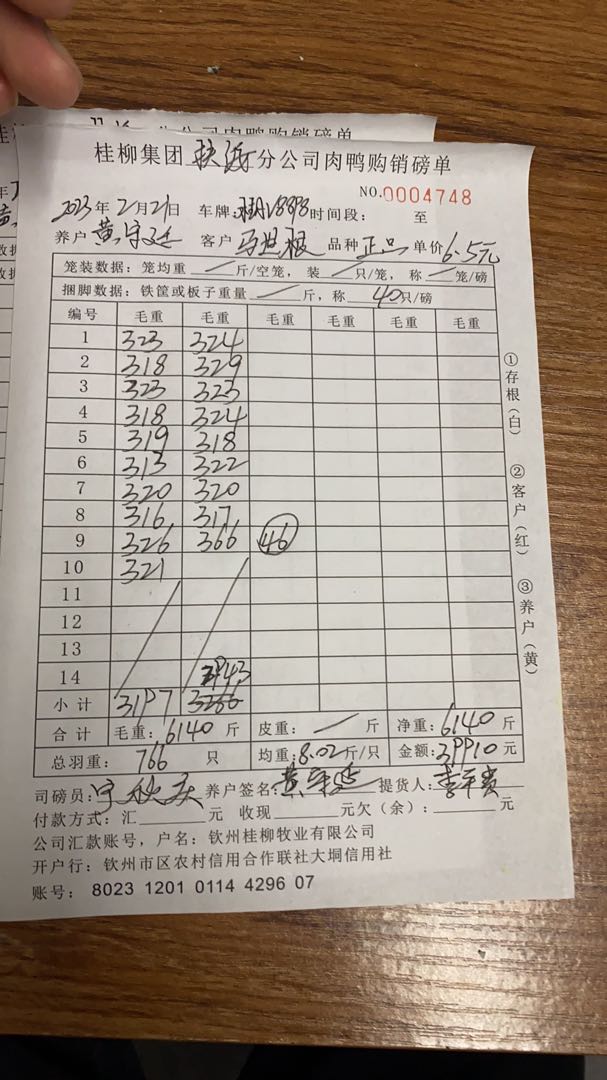 分公司肉鸭购销磅单
桂柳集团 分公司肉鸭购销磅单
NO.0004748
2023年2月21日 车牌: 时间段: 至
养户 黄 客户 马世根 品种 正品 单价 6.5元
笼装数据: 笼均重 / 斤/空笼, 装 / 只/笼, 称 / 笼/磅
捆脚数据: 铁筐或板子重量 / 斤, 称 40只/磅
编号 毛重 毛重 毛重 毛重 毛重 毛重
1 323 324
2 318 329
3 323 323
4 318 324
5 319 318
6 313 322
7 320 320
8 316 317
9 326 366 46
10 321
11
12
13
14 2943
小计 3197 3266
合计 毛重: 6140 斤 皮重: / 斤 净重: 6140 斤
总羽重: 766 只 均重: 8.02斤/只 金额: 39910 元
司磅员: 养户签名: 黄 提货人: 李
付款方式: 汇 元 收现 元欠(余): 元
公司汇款账号, 户名: 钦州桂柳牧业有限公司
开户行: 钦州市区农村信用合作联社大垌信用社
账号: 8023 1201 0114 4296 07
①存根(白)
②客户(红)
③养户(黄)